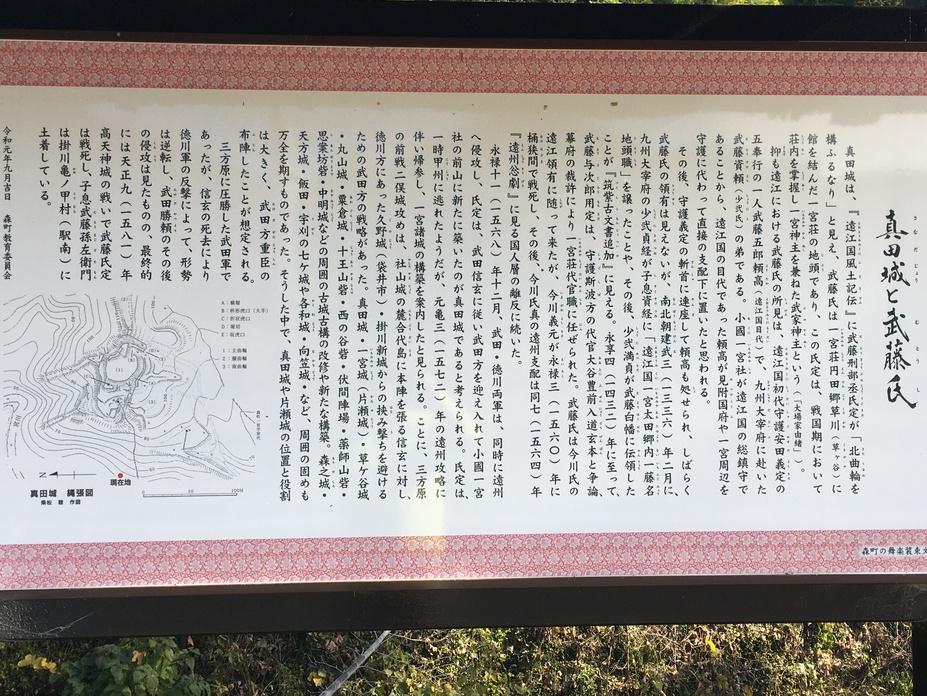 真田城と武藤氏
さなだじょう むとう
真田城は、『遠江国風土記伝』に武藤刑部丞氏定が「北曲輪を
構ふるなり」と見え、武藤氏は一宮荘円田郷草川(草ヶ谷)に
館を結んだ一宮荘の地頭であり、この氏定は、戦国期において
荘内を掌握し一宮神主を兼ねた武家神主という(「大場家由緒」)。
抑も遠江における武藤氏の所見は、遠江国初代守護安田義定の
五奉行の一人武藤五郎頼高(遠江国目代)で、九州大宰府に赴いた
武藤資頼(少弐氏)の弟である。小國一宮社が遠江国の総鎮守で
あることから、目代であった頼高が見附国府や一宮周辺を
守護に代わって直接の支配下に置いたと思われる。
その後、守護義定の斬首に連座して頼高も処せられ、しばらく
武藤氏の領有は見えないが、南北朝建武三(一三三六)年二月に
九州大宰府の少弐貞経が子息資経に「遠江国一宮太田郷内一藤名
地頭職」を譲ったことや、その後、少弐満貞が武藤白幡に伝領した
ことが『筑紫古文書追加』に見える。永享四(一四三二)年に至って
武藤与次郎用定は、守護斯波方の代官大谷豊前入道玄本と争論、
幕府の裁許により一宮荘代官職に任ぜられた。武藤氏は今川氏の
遠江領有に随って来たが、今川義元が永禄三(一五六〇)年
桶狭間で戦死し、その後、今川氏真の遠州支配は同七(一五六四)年
『遠州忩劇』に見る国人層の離反に続いた。
永禄十一(一五六八)年十二月、武田・徳川両軍は、同時に遠州
へ侵攻し、氏定は、武田信玄に従い武田方を迎え入れて小國一宮
社の前山に新たに築いたのが真田城であると考えられる。氏定は、
一時甲州に逃れたようだが、元亀三(一五七二)年の遠州攻略に
伴い帰参し、一宮諸城の構築を案内したと見られる。ことに、三方原
の前戦二俣城攻めは、社山城の麓合代島に本陣を張る信玄に対し、
徳川方にあった久野城(袋井市)・掛川新城からの挟み撃ちを避ける
ための武田方の戦略があった。真田城・一宮城(片瀬城)・草ケ谷城
・丸山城・粟倉城・十王山砦・西の谷砦・伏間陣場・薬師山砦・
思案坊砦・中明城などの周囲の古城古構の改修や新たな構築。森之城・
天方城・飯田・宇刈の七ケ城や各和城・向笠城・など、周囲の固めも
万全を期すものであった。そうした中で、真田城や片瀬城の位置と役割
は大きく、武田方重臣の
布陣したことが想定される。
三方原に圧勝した武田軍で
あったが、信玄の死去により
徳川軍の反撃によって、形勢
は逆転し、武田勝頼のその後
の侵攻は見たものの、最終的
には天正九(一五八一)年
高天神城の戦いで武藤氏定
は戦死し、子息武藤孫左衛門
は掛川亀ノ甲村(駅南)に
土着している。
令和元年九月吉日 森町教育委員会
A:横堀
B:枡形虎口(大手)
C:折坂虎口
D:堀切
E:坂虎口
1:主曲輪
2:腰曲輪
3:南曲輪
N
現在地
真田城 縄張図
乗松 稔 作図
0 50 100M
森町の舞楽装束文